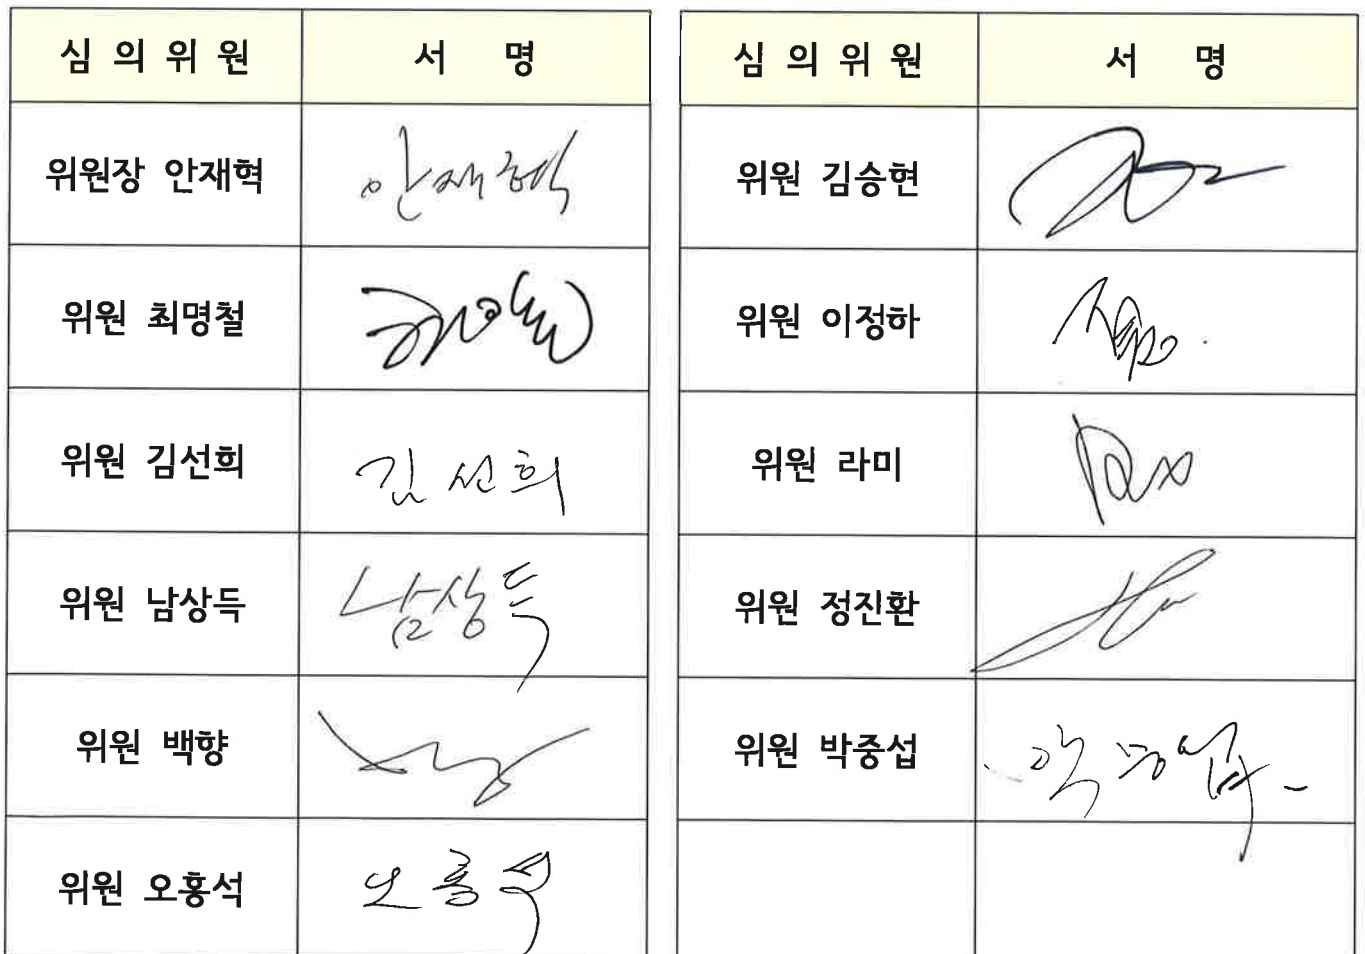 심 의 위 원 서 명
위원장 안재혁 안재혁
위원 최명철
위원 김선희 김선희
위원 남상득 남상득
위원 백향
위원 오홍석 오홍석
심 의 위 원 서 명
위원 김승현
위원 이정하
위원 라미
위원 정진환
위원 박중섭